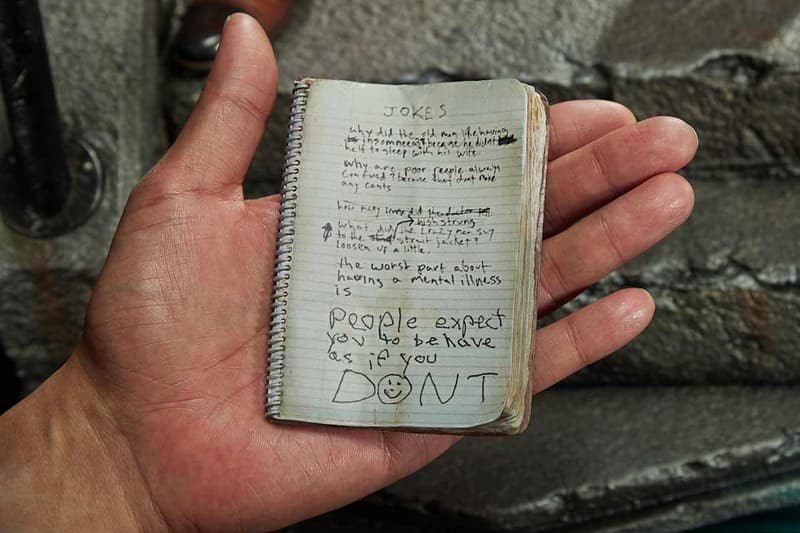 JOKES
why did the old man like having
insomneea? because he didnt
haft to sleep with his wife.
why are poor peeple always
confused? because they dont have
any cents
how many
did the doctor
high strung
what did the crazy man say
to the strait jacket?
loosen up a little.
the worst part about
having a mental illness
is
people expect
you to behave
as if you
DONT